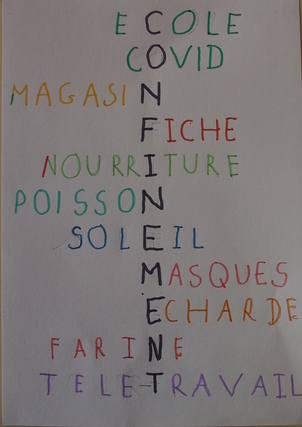 ECOLE
COVID
MAGASIN
FICHE
NOURRITURE
POISSON
SOLEIL
MASQUES
ECHARDE
FARINE
TELE-TRAVAIL